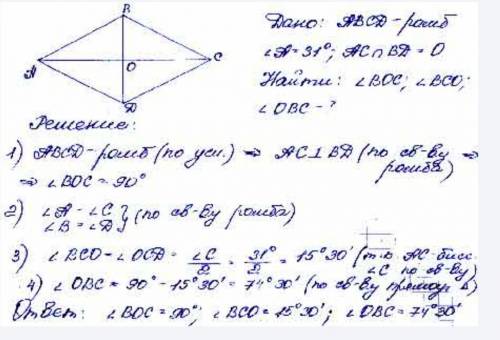 B
A
O
C
D
Дано: ABCD - ромб
∠A = 31°; AC∩BD = O
Найти: ∠BOC; ∠BCO;
∠OBC - ?
Решение:
1) ABCD - ромб (по усл.) ⇒ AC⊥BD (по св-ву ромба) ⇒
⇒ ∠BOC = 90°
2) ∠A = ∠C
∠B = ∠D } (по св-ву ромба)
3) ∠BCO = ∠OCD = ∠C/2 = 31°/2 = 15°30' (т.к. AC - бисс.
∠C по св-ву)
4) ∠OBC = 90° - 15°30' = 74°30' (по св-ву прямоуг. Δ)
Ответ: ∠BOC = 90°; ∠BCO = 15°30'; ∠OBC = 74°30'